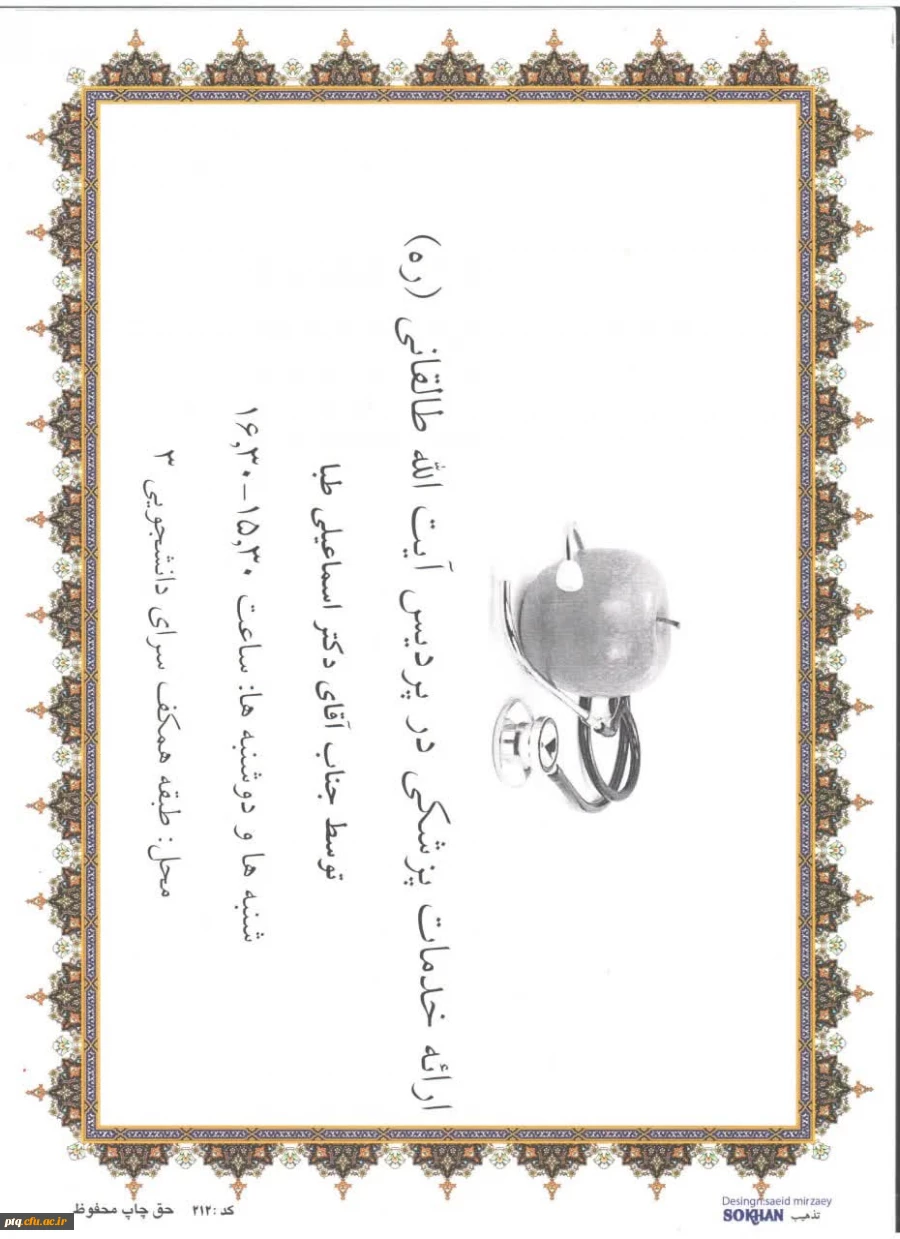 ارائه خدمات پزشکی در پردیس آیت الله طالقانی (ره)
توسط جناب آقای دکتر اسماعیلی طبا
شنبه ها و دوشنبه ها: ساعت ۱۵,۳۰-۱۶,۳۰
محل: طبقه همکف سرای دانشجویی ۳
کد :۲۱۲ حق چاپ محفوظ
Desingn:saeid mirzaey
تذهیب SOKHAN
ptq.cfu.ac.ir